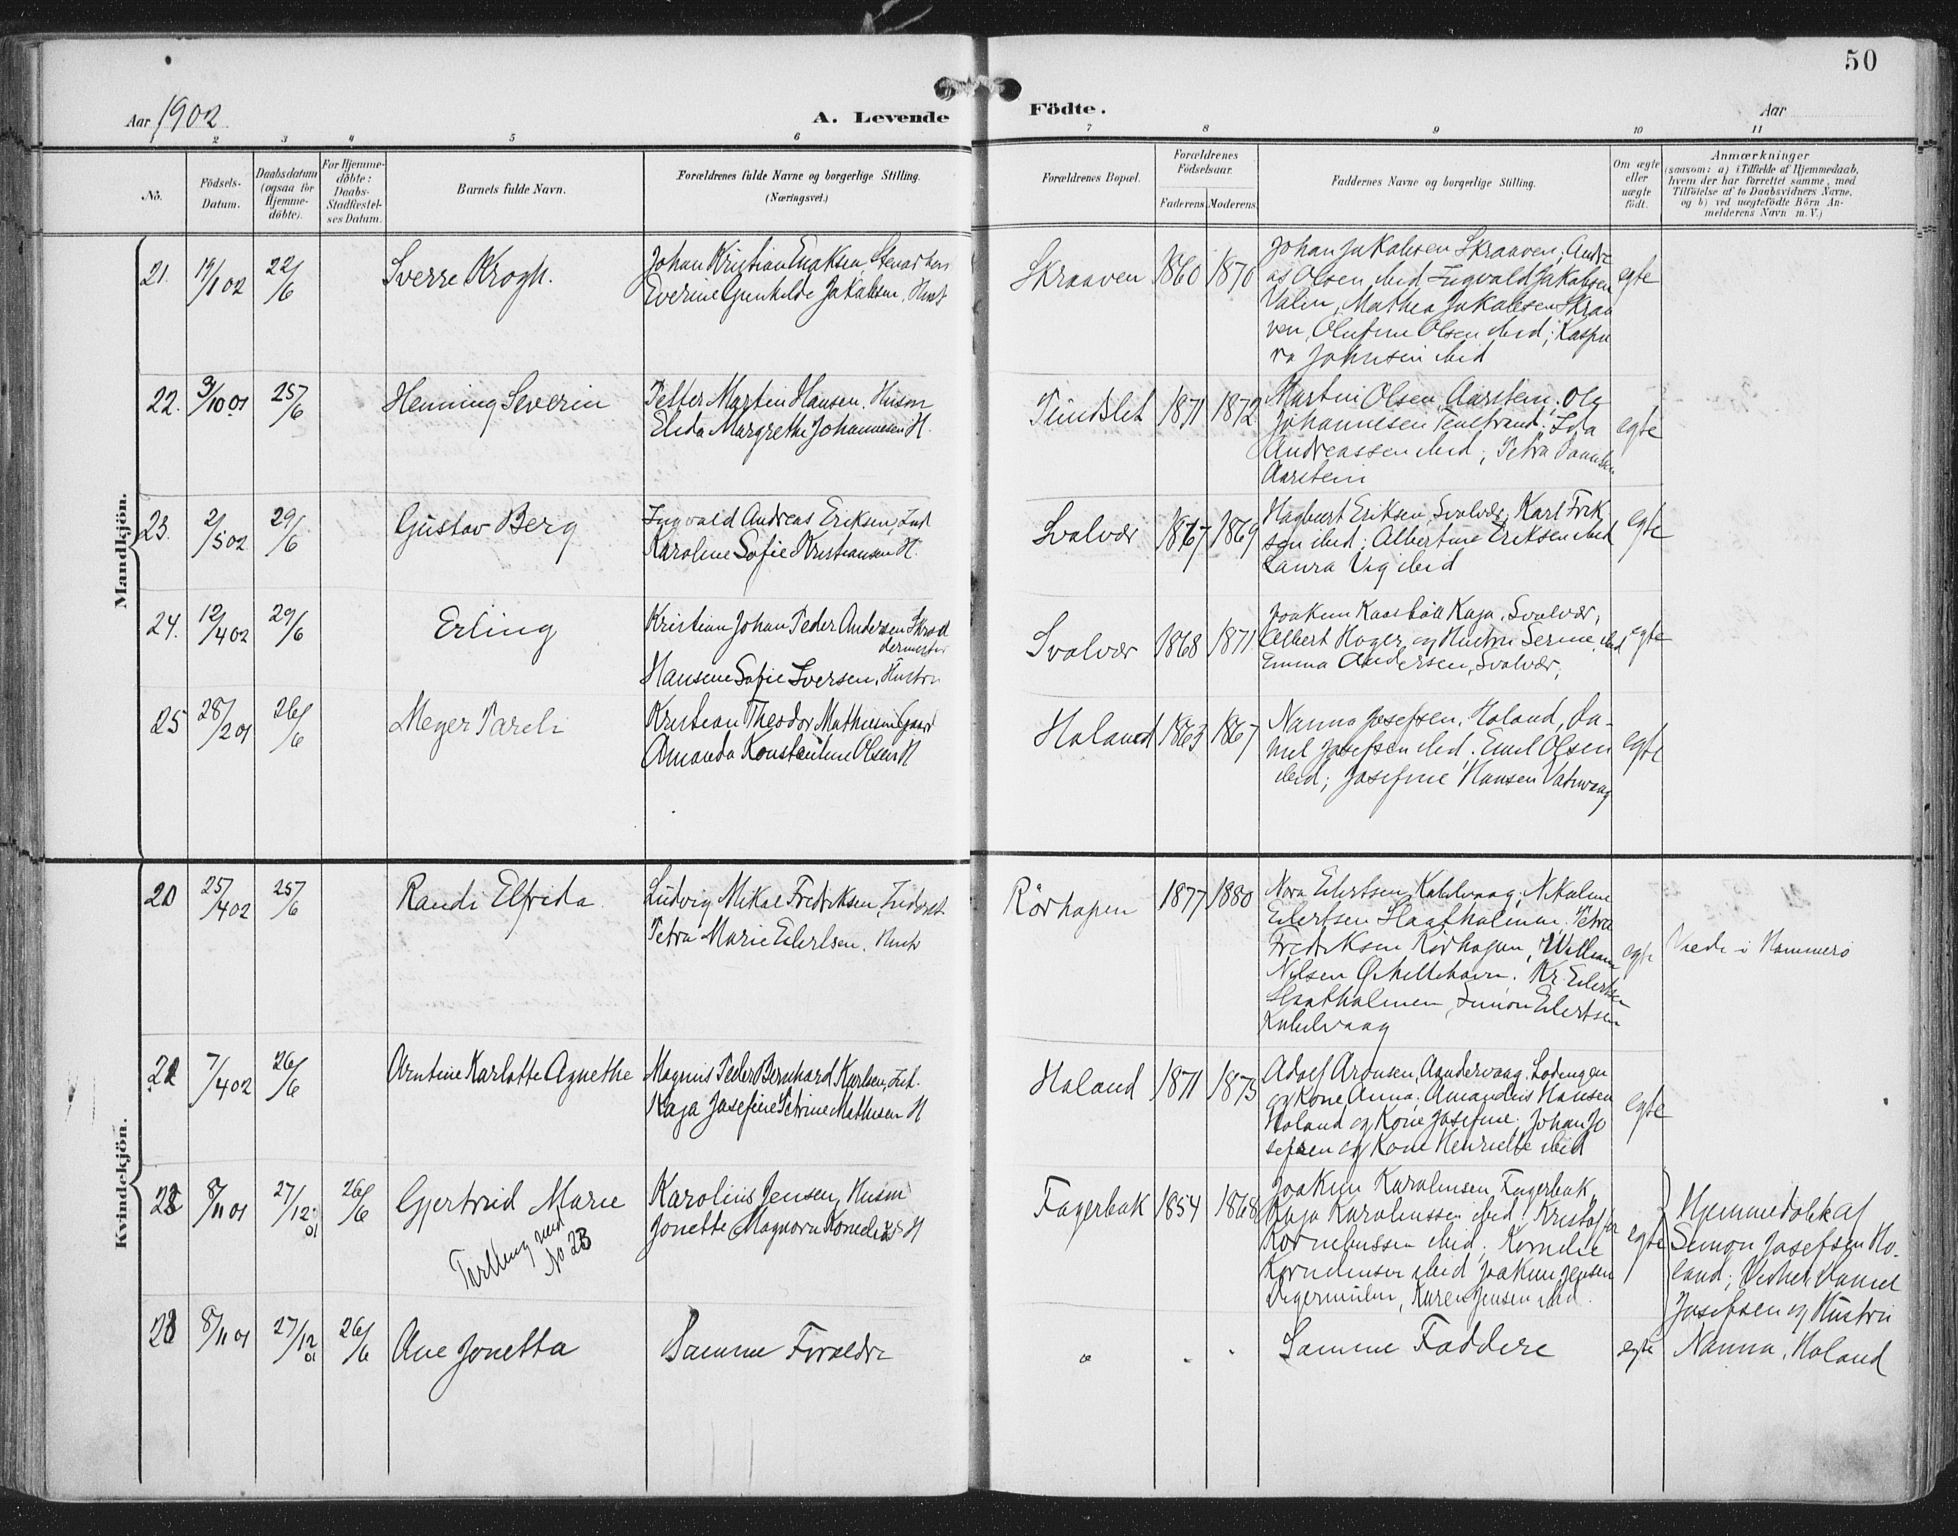 50
Aar 1902
A. Levende Födte.
Aar
1 2 3 4 5 6 7 8 9 10 11
No.
Födsels-
Datum.
Daabsdatum
(ogsaa for
Hjemme-
döbte).
For Hjemme-
döbte:
Daabs-
Stadfæstel-
ses Datum.
Barnets fulde Navn.
Forældrenes fulde Navne og borgerlige Stilling.
(Næringsvei.)
Forældrenes Bopæl.
Forældrenes
Födselsaar.
Faderens. Moderens.
Faddernes Navne og borgerlige Stilling.
Om ægte
eller
uægte
födt.
Anmærkninger
(saasom: a) i Tilfælde af Hjemmedaab,
hvem der har forrettet samme, med
Tilföielse af to Daabsvidners Navne,
og b) ved uegtefödte Börn An-
melderens Navn m. V.)
Mandkjön.
21. 19/1 02 22/6 Sverre Krogh.
Johan Kristian
Jakobsen, Hust
Skraaven 1860 1870
Johan Jakobsen Skraaven, Andre
as Olsen ibid Ingvald Jakobsen
Valen, Mathea Jakobsen Skraa
ven, Olufine Olsen ibid; Kaspa
ra Johnsen ibid
egte
22. 3/10 01 25/6 Henning Severin
Petter Martin Hansen. Husm
Elida Margrethe Johannesen H.
Tindslet 1871 1872
Martin Olsen Aarstein, Ole
Johannesen; Ida
Andreassen ibid; Petra
Aarstein
egte
23. 2/5 02 29/6 Gustav Berg
Ingvald Andreas Eriksen, Ind
Karoline Sofie Kristiansen H.
Svolvær 1867 1869
Hagbart Eriksen, Svolvær; Karl Erik
sen ibid; Albertine Eriksen ibid
Laura Vig ibid
egte
24. 12/4 02 29/6 Erling
Kristian Johan Peder Andersen Skræd
dermester
Hansine Sofie Iversen, Hustru
Svolvær 1868 1871
Joakim Kaja, Svolvær,
Albert og Hustru Serine, ibid
Emma Andersen, Svolvær,
egte
25 28/2 01 26/6 Meyer Pareli
Kristian Theodor Mathisen Gaard
Amanda Konstantine Olsen H
Holand 1863 1867
Nanna Josefsen, Holand, Da-
niel Josefsen ibid, Emil Olsen
ibid; Josefine Hansen Vatnvaag
egte
Kvindekjön.
20 25/4 02 25/6 Randi Elfrida
Ludvig Mikal Fredriksen, Inderst
Petra Marie Eilertsen. Hustr
Rörhopen 1877 1880
Nora Eilertsen, Kabelvaag, Nikoline
Eilertsen Skaftholmen, Petra
Fredriksen Rörhopen, William
Nilsen. Kr. Eilertsen
Skaftholmen, Simon Eilertsen
Kabelvaag
egte
Viede i Hammerö
21 7/4 02 26/6 Arntine Karlotte Agnethe
Magnus Peder Bernhard Karlsen, Ind.
Kaja Josefine Petrine Mathisen H
Holand 1871 1875
Adolf Aronsen, Aandervaag, Lødingen
og Kone Anna; Amandus Hansen
Holand og Kone Josefine. Johan Jo
sefsen og Kone Henriette ibid
egte
22 8/11 01 27/12 01 26/6 Gjertrud Marie
Tvilling med
No 23
Karolius Jensen, Husm
Jonette Magnora Kornelius H
Fagerbak 1854 1868
Joakim Karoliusen, Fagerbak,
Kaja Karoliussen ibid, Kristoffer
Korneliussen ibid; Kornelie
Korneliusen ibid, Joakim Jensen
Digermulen, Karen Jensen ibid.
egte
Hjemmedöbt af
Simon Josefsen Ho-
land; Vidner Daniel
Josefsen og Hustru
Nanna, Holand
23 8/11 01 27/12 01 26/6 Ane Jonetta
Samme Forældre
" " "
Samme Faddere
egte